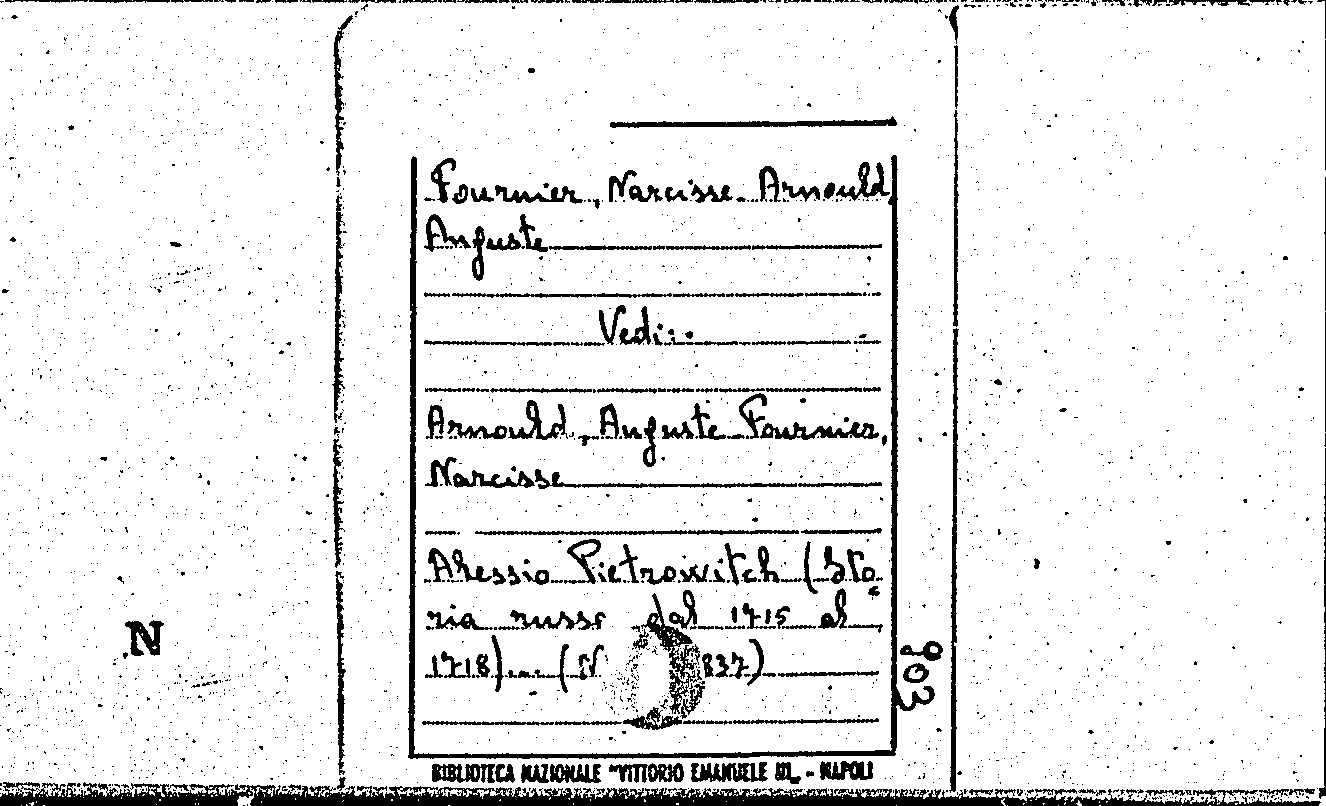 Fournier, Narcisse. Arnould,
Auguste
Vedi:
Arnould, Auguste Fournier,
Narcisse
Alessio Pietrowitch (Sto=
ria russa dal 1715 al
1718)... (N 837)
903
N
BIBLIOTECA NAZIONALE "VITTORIO EMANUELE III„ - NAPOLI